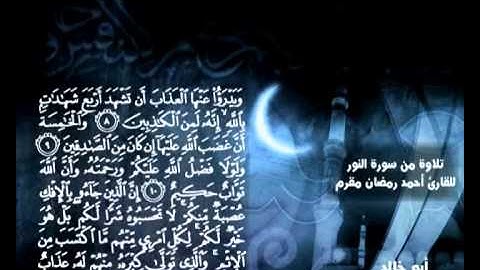 وَيَدْرَؤُا۟ عَنْهَا الْعَذَابَ أَن تَشْهَدَ أَرْبَعَ شَهَٰدَٰتٍۭ
بِاللَّهِ إِنَّهُۥ لَمِنَ الْكَٰذِبِينَ ٨ وَالْخَٰمِسَةَ
أَنَّ غَضَبَ اللَّهِ عَلَيْهَا إِن كَانَ مِنَ الصَّٰدِقِينَ ٩
وَلَوْلَا فَضْلُ اللَّهِ عَلَيْكُمْ وَرَحْمَتُهُۥ وَأَنَّ اللَّهَ
تَوَّابٌ حَكِيمٌ ١٠ إِنَّ الَّذِينَ جَآءُو بِالْإِفْكِ
عُصْبَةٌ مِّنكُمْ لَا تَحْسَبُوهُ شَرًّا لَّكُم بَلْ هُوَ
خَيْرٌ لَّكُمْ لِكُلِّ امْرِئٍ مِّنْهُم مَّا اكْتَسَبَ مِنَ
الْإِثْمِ وَالَّذِي تَوَلَّىٰ كِبْرَهُۥ مِنْهُمْ لَهُۥ عَذَابٌ
تلاوة من سورة النور
للقارئ أحمد رمضان مقرم
أبو خالد